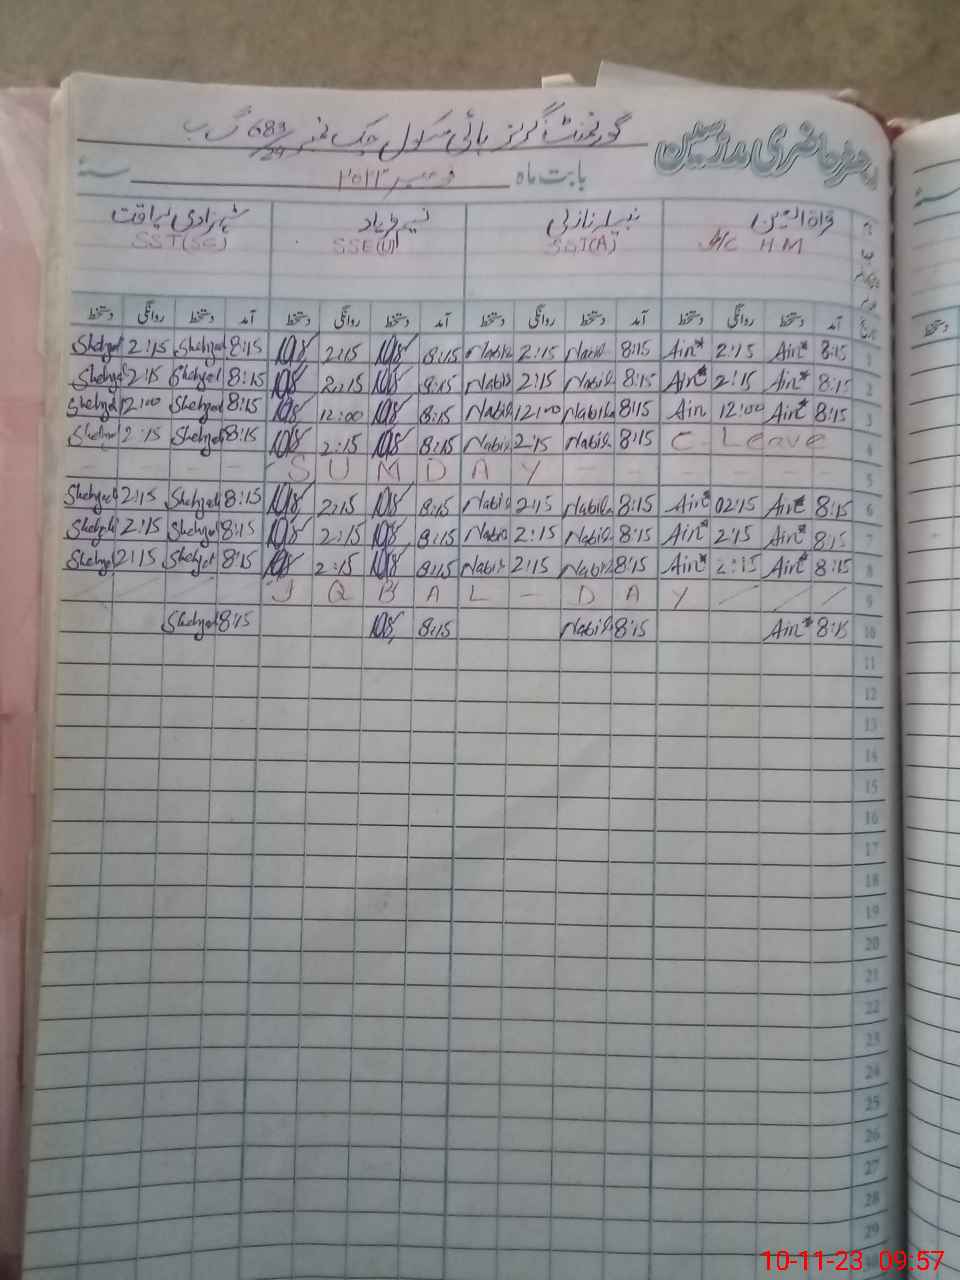 گورنمنٹ گرلز ہائی سکول چک نمبر 683/24 گ ب
رجسٹر حاضری مدرسین
بابت ماہ نومبر ۲۰۲۳ سنہ
قراۃ العین نبیلہ نازلی شہزادی لیاقت
I/C H.M SST(A) SSE(U) SST(SC)
آمد دستخط روانگی دستخط آمد دستخط روانگی دستخط آمد دستخط روانگی دستخط آمد دستخط روانگی دستخط
Shehzad 2:15 Shehzad 8:15 2:15 8:15 Nabila 2:15 Nabila 8:15 Ain* 2:15 Ain* 8:15 1
Shehzad 2:15 Shehzad 8:15 2:15 8:15 Nabila 2:15 Nabila 8:15 Ain* 2:15 Ain* 8:15 2
Shehzad 12:00 Shehzad 8:15 12:00 8:15 Nabila 12:00 Nabila 8:15 Ain 12:00 Ain* 8:15 3
Shehzad 2:15 Shehzad 8:15 2:15 8:15 Nabila 2:15 Nabila 8:15 C. Leave 4
- - - - S U M D A Y - - - - - - 5
Shehzad 2:15 Shehzad 8:15 2:15 8:15 Nabila 2:15 Nabila 8:15 Ain* 02:15 Ain* 8:15 6
Shehzad 2:15 Shehzad 8:15 2:15 8:15 Nabila 2:15 Nabila 8:15 Ain* 2:15 Ain* 8:15 7
Shehzad 2:15 Shehzad 8:15 2:15 8:15 Nabila 2:15 Nabila 8:15 Ain* 2:15 Ain* 8:15 8
I Q B A L - D A Y / / / 9
Shehzad 8:15 8:15 Nabila 8:15 Ain* 8:15 10
11
12
13
14
15
16
17
18
19
20
21
22
23
24
25
26
27
28
29
10-11-23 09:57